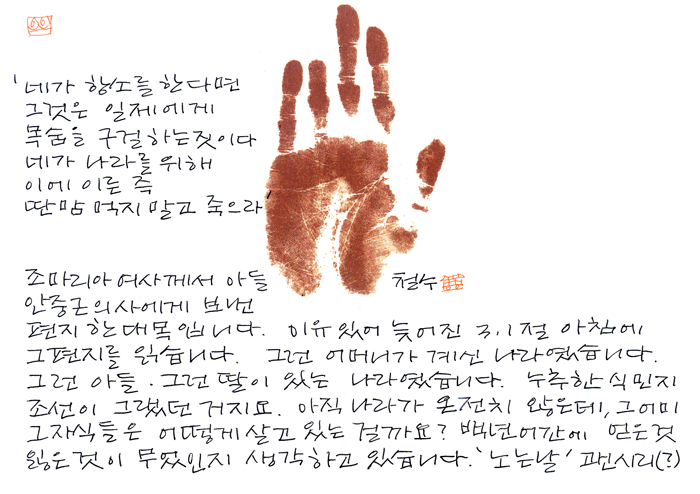 '네가 항소를 한다면
그것은 일제에게
목숨을 구걸하는짓이다
네가 나라를 위해
이에 이른 즉
딴맘 먹지 말고 죽으라'
조마리아여사께서 아들
안중근의사에게 보낸
편지 한대목입니다. 이유있어 늦어진 3.1절 아침에
그편지를 읽습니다. 그런 어머니가 계신 나라였습니다.
그런 아들·그런 딸이 있는 나라였습니다. 누추한 식민지
조선이 그랬던 거지요. 아직 나라가 온전치 않은데, 그어미
그자식들은 어떻게 살고 있는 걸까요? 백년어간에 얻은것
잃은것이 무엇인지 생각하고 있습니다. '노는날' 괜시리(?)
철수